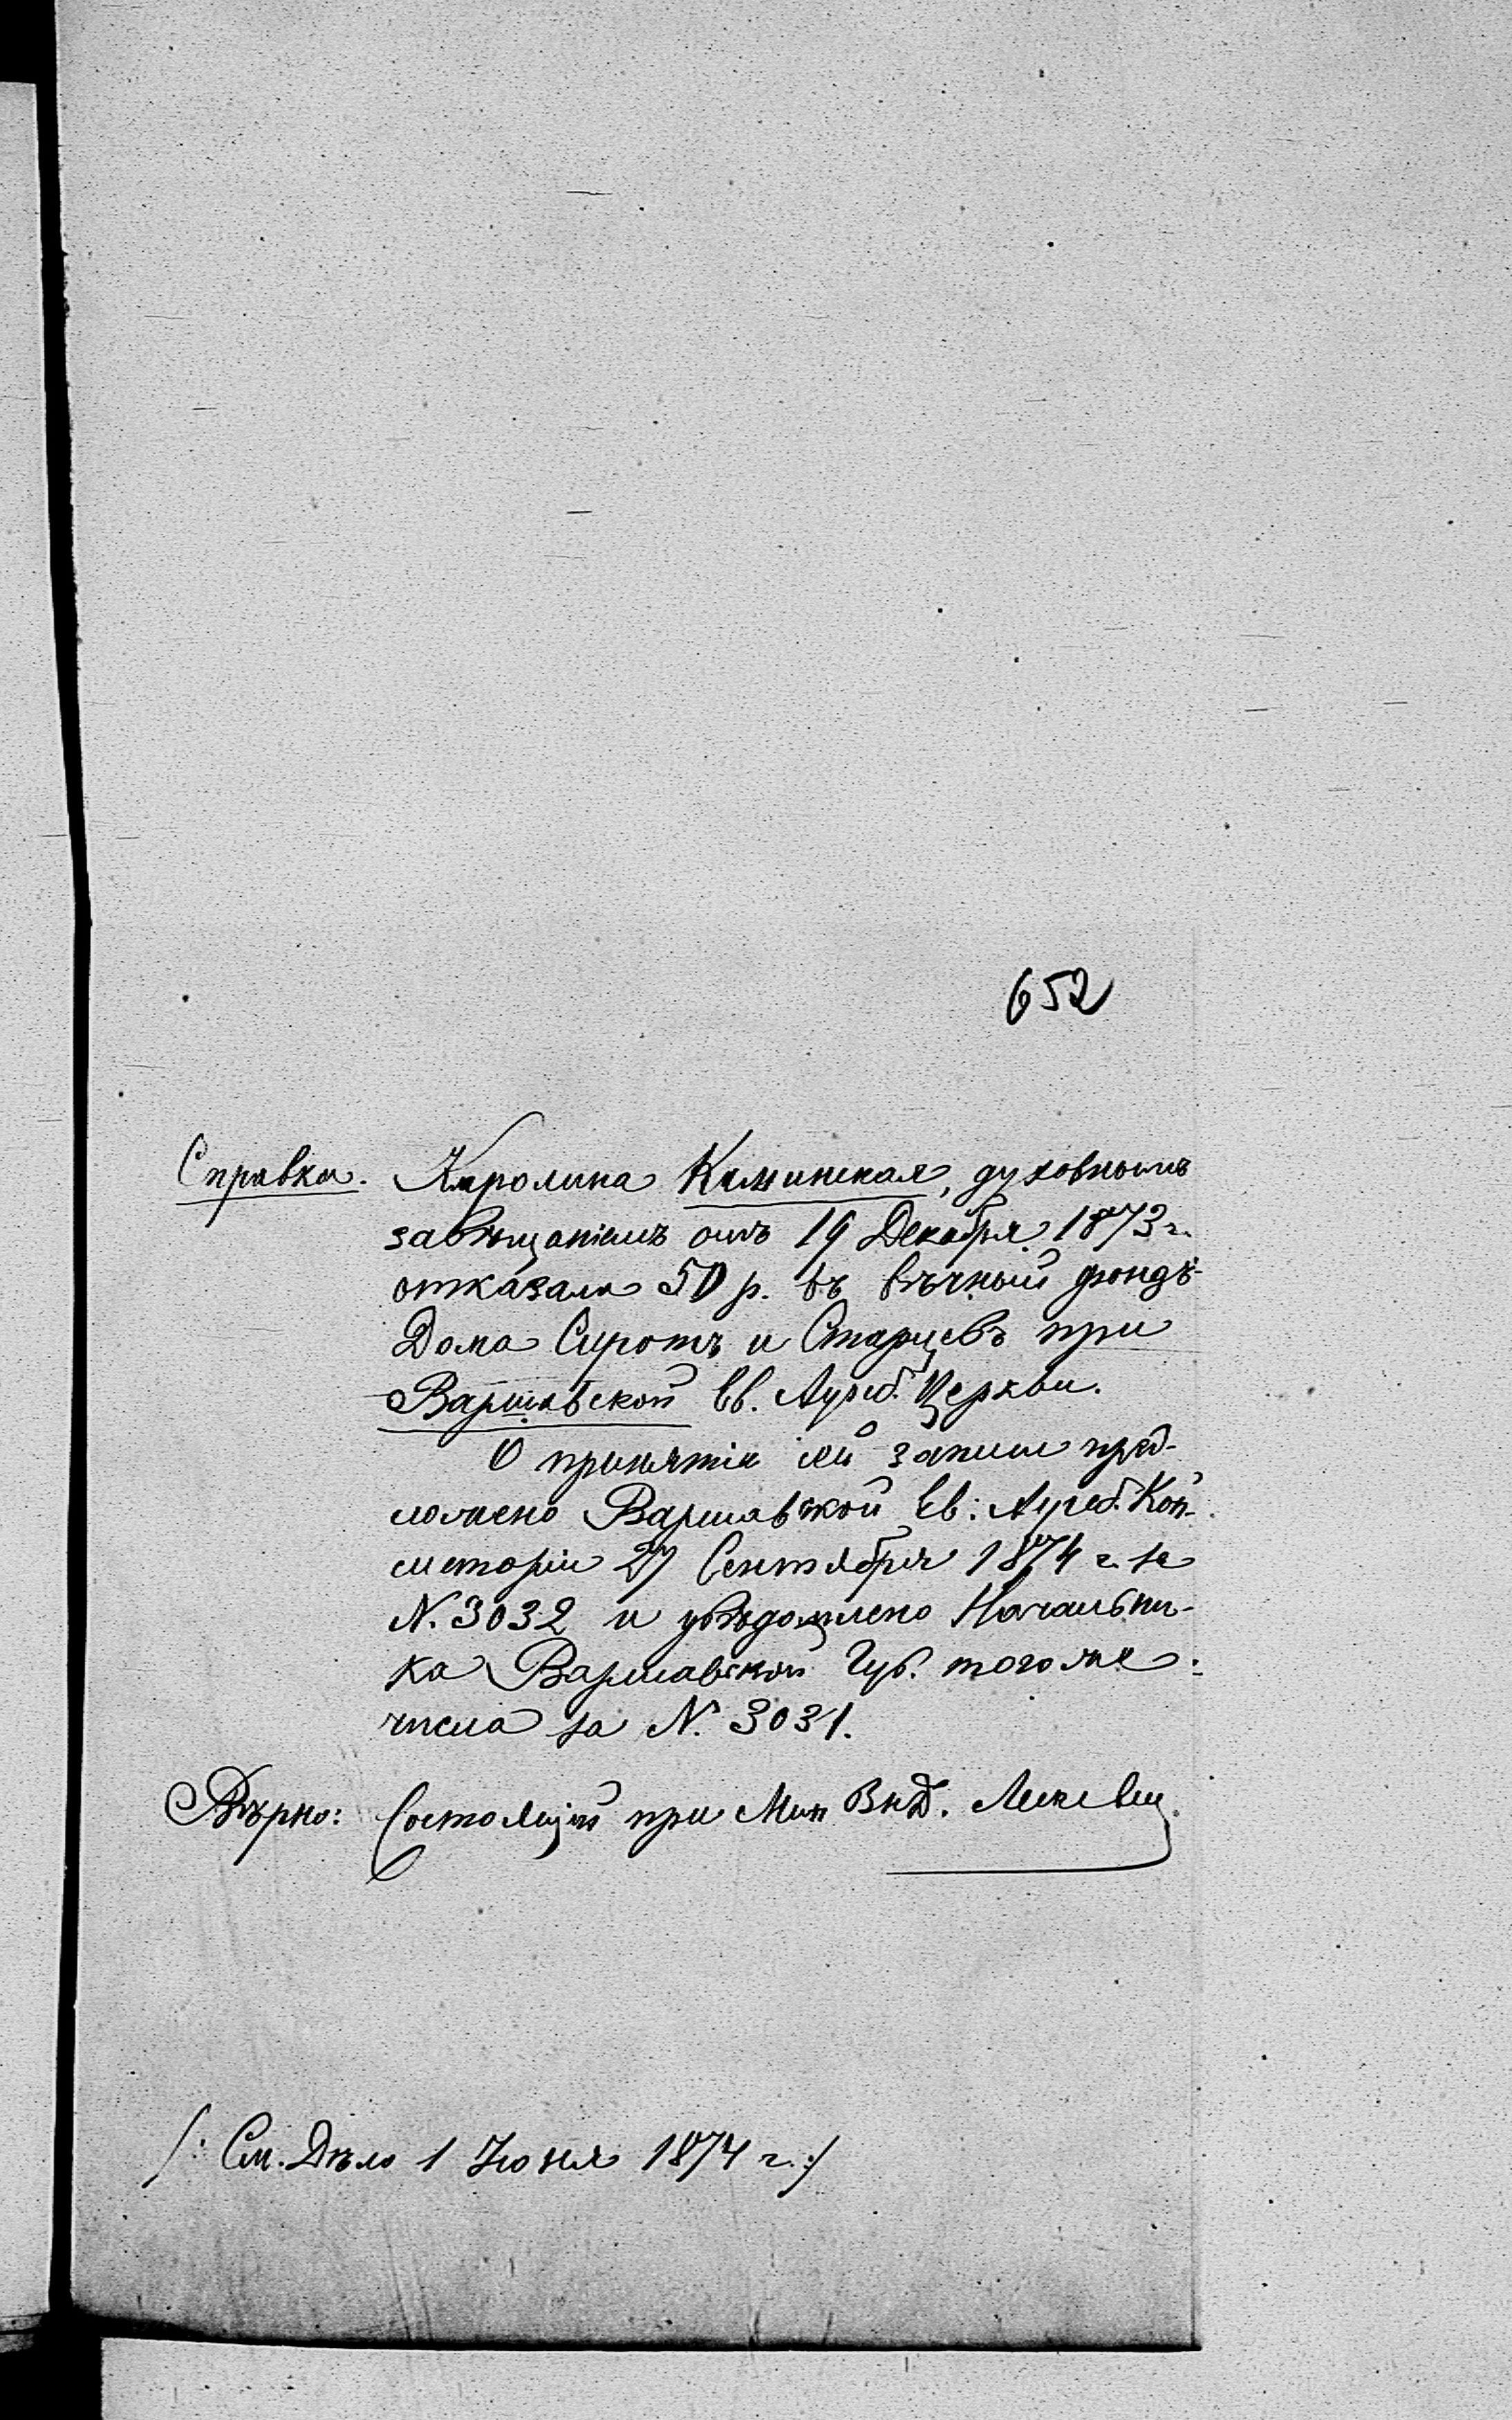 652
Справка. Каролина Каминская, духовнымъ
завѣщаніемъ отъ 19 Декабря 1873 г.
отказала 50 р. въ вѣчный фондъ
Дома Сиротъ и Старцевъ при
Варшавской Ев. Аугсб. Церкви.
О принятіи сей записи пред-
ложено Варшавской Ев: Аугсб. Кон-
систоріи 27 Сентября 1874 г. за
N. 3032 и увѣдомлено Начальни-
ка Варшавской Губ. того же
числа за N. 3031.
Вѣрно: Состоящій при Мин Вн Д.
/: См. Дѣло 1 Іюня 1874 г. :/